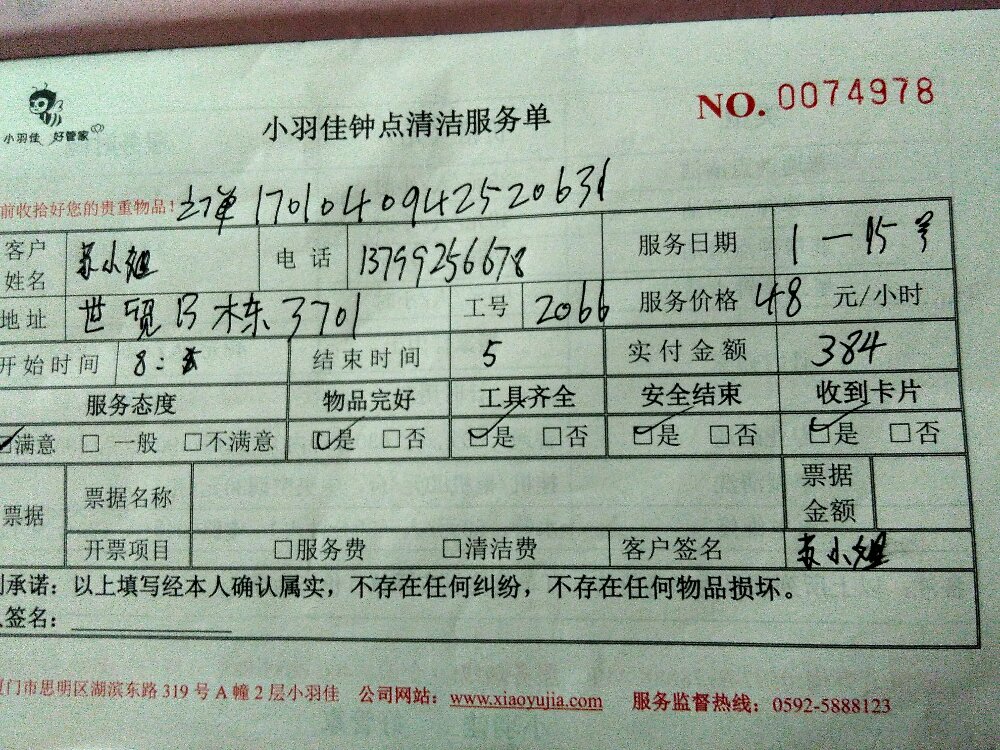 小羽佳 好管家
小羽佳钟点清洁服务单
NO. 0074978
前收拾好您的贵重物品! 订单1701040942520631
客户姓名 苏小姐 电话 13799256678 服务日期 1-15号
地址 世贸B栋3701 工号 2066 服务价格 48 元/小时
开始时间 8: 结束时间 5 实付金额 384
服务态度 物品完好 工具齐全 安全结束 收到卡片
满意 □一般 □不满意 □是 □否 □是 □否 □是 □否 □是 □否
票据 票据名称 票据金额
开票项目 □服务费 □清洁费 客户签名 苏小姐
承诺：以上填写经本人确认属实，不存在任何纠纷，不存在任何物品损坏。
签名：
门市思明区湖滨东路319号A幢2层小羽佳 公司网站：www.xiaoyujia.com 服务监督热线：0592-5888123